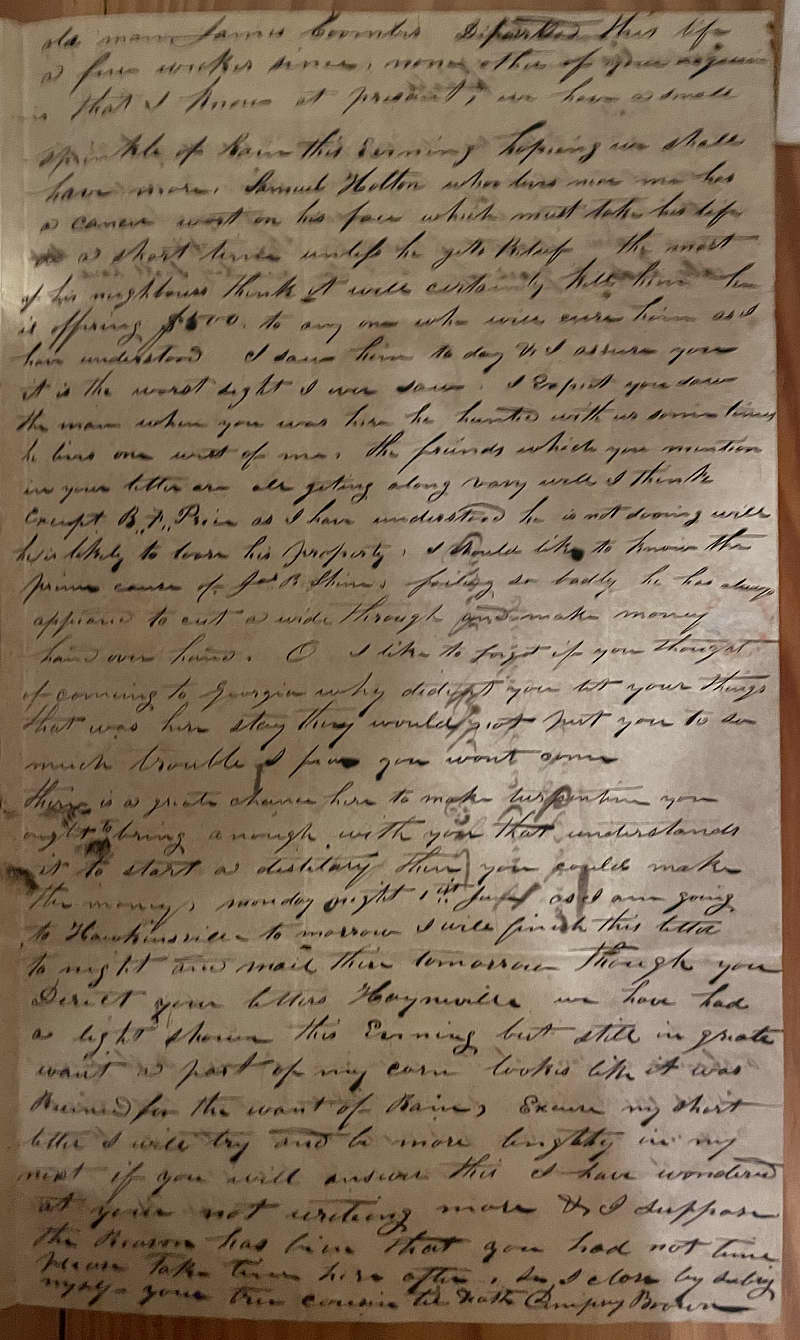 old man James Coombs Departed this life
a few weekes since, none other of your acquain
 that I know at present, we have a small
sprinkle of Rain this Evening hopeing we shall
have more, Samuel Holton who lives near me has
a cancer wort on his face which must take his life
in a short time unless he gets Relief the most
of his neighbours think it will certainly kill him he
is offering $500. to any one who will cure him as I
have understood I saw him to day & I assure you
it is the worst sight I ever saw. I Expect you saw
the man when you was here he hunted with us some times
he lives one west of me, the friends which you mention
in your letter are all geting along vary well I think
Except B. A. Price as I have understood he is not dooing well
he is likely to loose his property, I should like to know the
prime cause of Jas R Shine, failing so badly he has always
appeared to cut a wide through and make money
hand over hand. O I like to forgot if you thought
of comeing to Georgia why didnt you let your things
that was here stay they would not put you to so
much trouble I fear you wont come
there is a greate chance here to make turpentine you
ought to bring anough with you that understands
it to start a distilary there you could make
the money, monday night 1st June as I am going
to Hawkinsville to morrow I will finish this letter
to night and mail there tomorrow Though you
Derect your letters Hayneville we have had
a light shower this Evening but still in greate
want a part of my corn lookes like it was
Ruined for the want of Rain, Excuse my short
letter I will try and be more lengthy in my
next if you will answer this I have wondered
at your not writeing more & I suppose
the Reason has been that you had not time
please take time here after, So I close by subing
myself your true cousin till Death Dempsey Brown